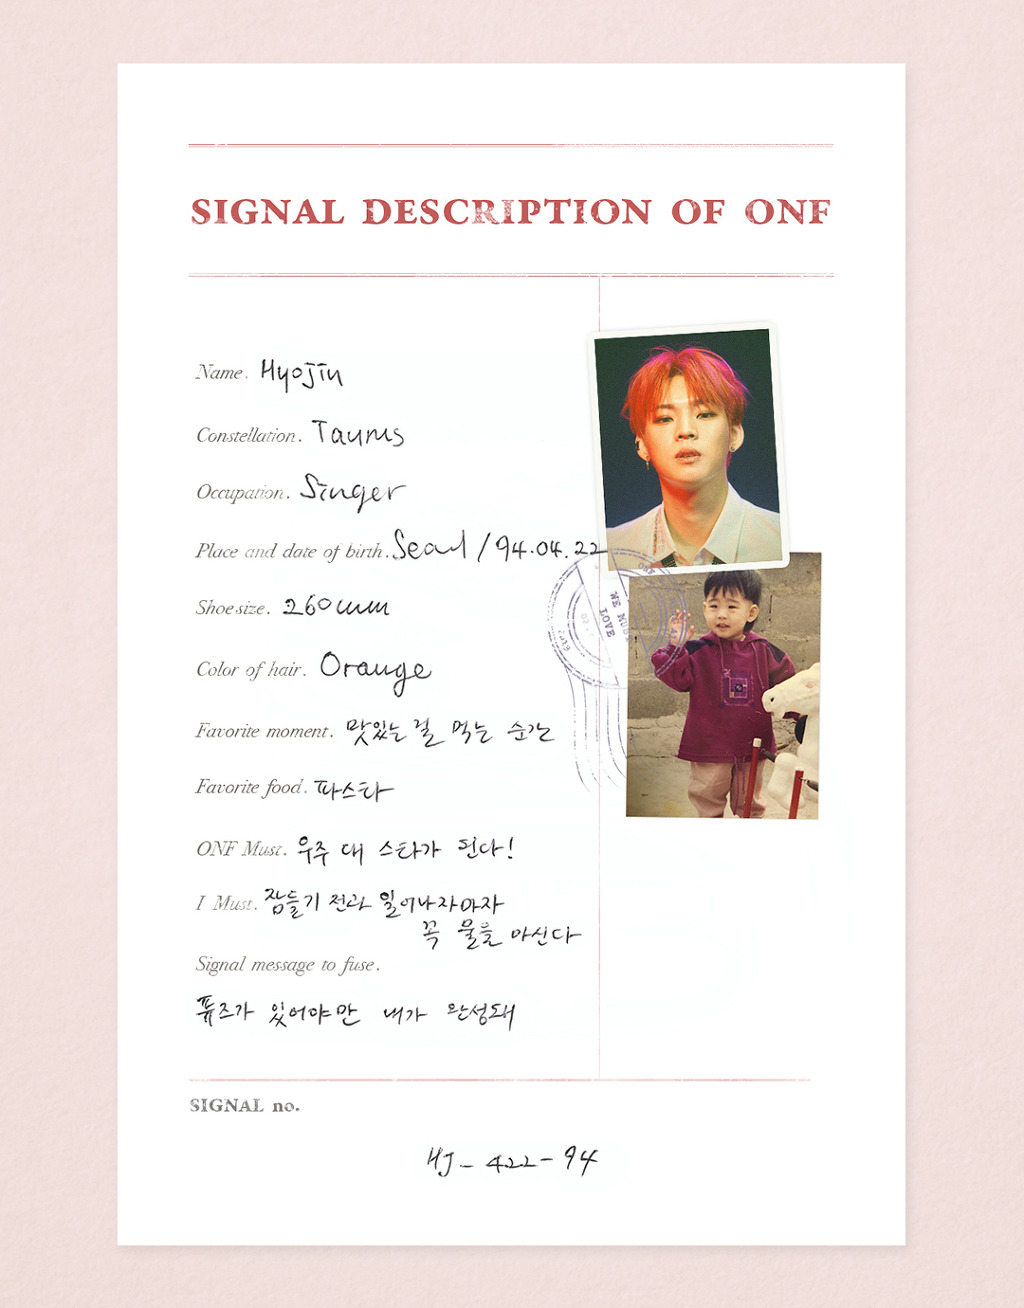 SIGNAL DESCRIPTION OF ONF
Name. Hyojin
Constellation. Taurus
Occupation. Singer
Place and date of birth. Seoul / 94.04.22
Shoe size. 260mm
Color of hair. Orange
Favorite moment. 맛있는 걸 먹는 순간
Favorite food. 파스타
ONF Must. 우주 대 스타가 된다!
I Must. 잠들기 전과 일어나자마자
꼭 물을 마신다
Signal message to fuse.
퓨즈가 있어야만 내가 완성돼
WE MUST
LOVE
ONF
SIGNAL no.
HJ - 422 - 94